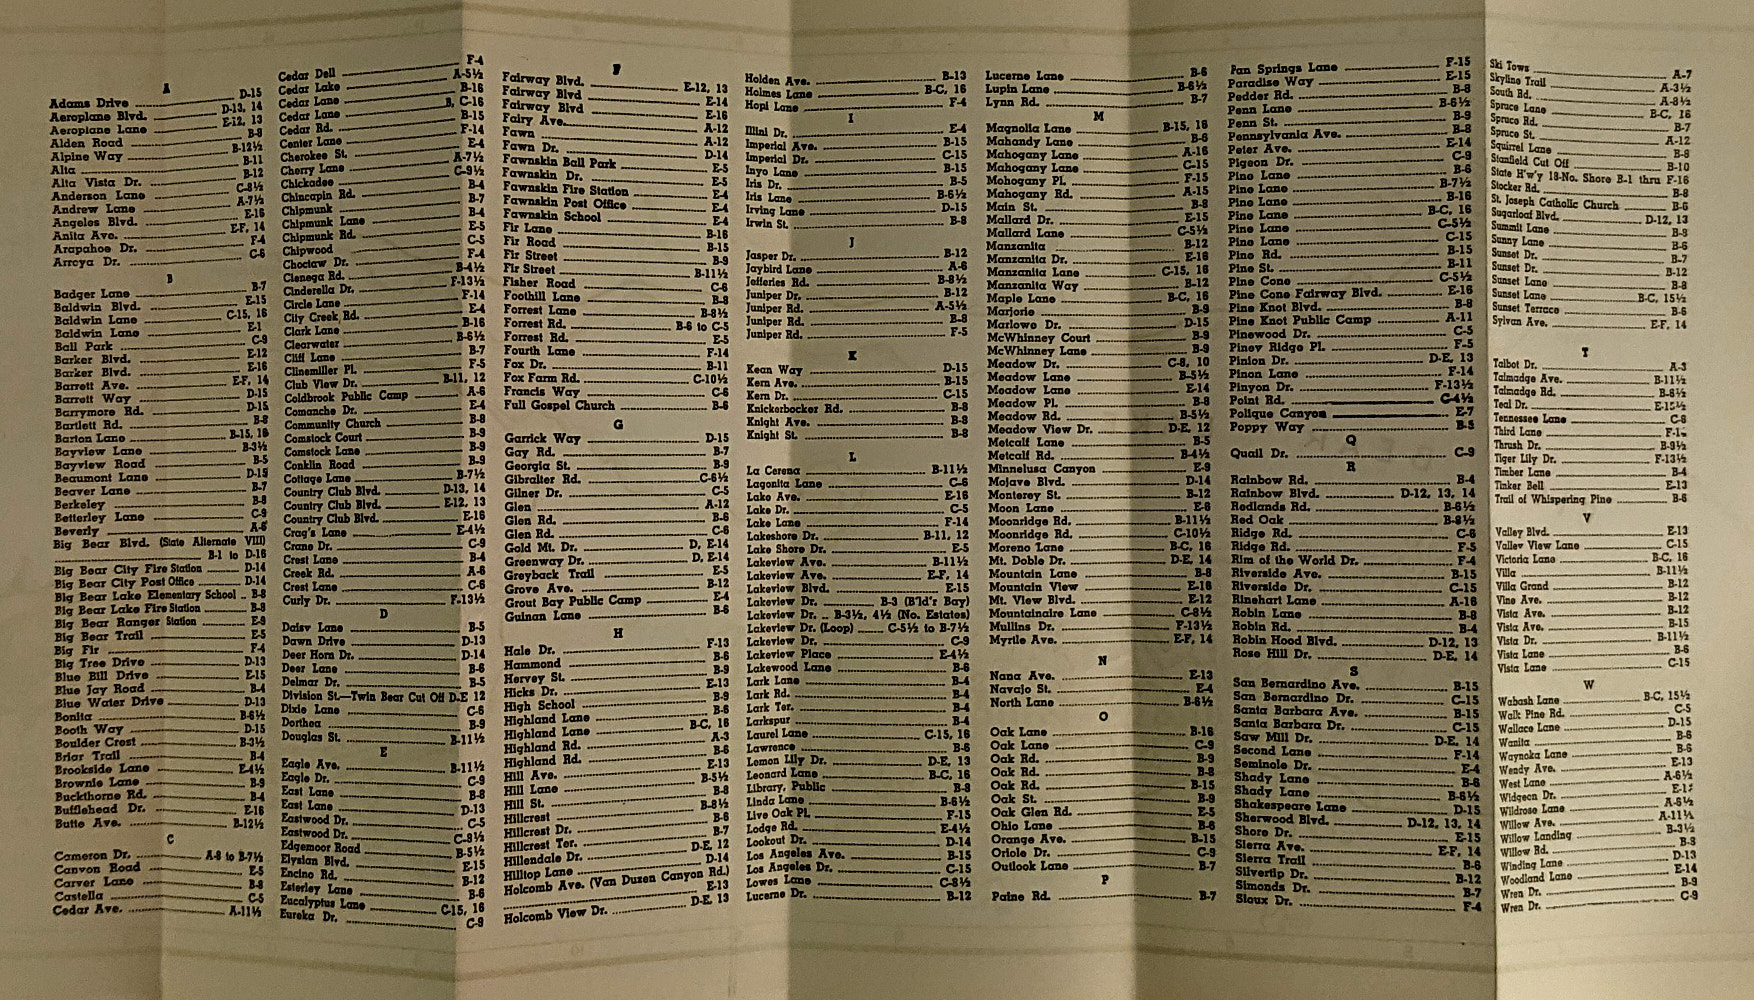 A
Adams Drive D-15
Aeroplane Blvd. D-13, 14
Aeroplane Lane E-12, 13
Alden Road B-9
Alpine Way B-12½
Alta B-11
Alta Vista Dr. B-12
Anderson Lane C-8½
Andrew Lane A-7½
Angeles Blvd. E-16
Anita Ave. E-F, 14
Arapahoe Dr. F-4
Arroya Dr. C-6
B
Badger Lane B-7
Baldwin Blvd. E-15
Baldwin Lane C-15, 16
Baldwin Lane E-1
Ball Park C-9
Barker Blvd. E-12
Barker Blvd. E-16
Barrett Ave. E-F, 14
Barrett Way D-15
Barrymore Rd. D-15
Bartlett Rd. B-8
Barton Lane B-15, 16
Bayview Lane B-3½
Bayview Road B-5
Beaumont Lane D-15
Beaver Lane B-7
Berkeley B-8
Betterley Lane C-9
Beverly A-6
Big Bear Blvd. (State Alternate VIII)
B-1 to D-16
Big Bear City Fire Station D-14
Big Bear City Post Office D-14
Big Bear Lake Elementary School B-8
Big Bear Lake Fire Station B-8
Big Bear Ranger Station E-9
Big Bear Trail E-5
Big Fir F-4
Big Tree Drive D-13
Blue Bill Drive E-15
Blue Jay Road B-4
Blue Water Drive D-13
Bonita B-6½
Booth Way D-15
Boulder Crest B-3½
Briar Trail B-4
Brookside Lane E-4½
Brownie Lane B-9
Buckthorne Rd. B-4
Bufflehead Dr. E-16
Butte Ave. B-12½
C
Cameron Dr. A-8 to B-7½
Canyon Road E-5
Carver Lane B-8
Castella C-5
Cedar Ave. A-11½
Cedar Dell F-4
Cedar Lake A-5½
Cedar Lane B-16
Cedar Lane B, C-16
Cedar Rd. B-15
Center Lane F-14
Cherokee St. E-4
Cherry Lane A-7½
Chickadee C-9½
Chincapin Rd. B-4
Chipmunk B-7
Chipmunk Lane B-4
Chipmunk Rd. E-5
Chipwood C-5
Choctaw Dr. F-4
Cienega Rd. B-4½
Cinderella Dr. F-13½
Circle Lane F-14
City Creek Rd. E-4
Clark Lane B-16
Clearwater B-6½
Cliff Lane B-7
Clinemiller Pl. F-5
Club View Dr. B-11, 12
Coldbrook Public Camp A-6
Comanche Dr. E-4
Community Church B-8
Comstock Court B-9
Comstock Lane B-9
Conklin Road B-9
Cottage Lane B-7½
Country Club Blvd. D-13, 14
Country Club Blvd. E-12, 13
Country Club Blvd. E-16
Crag's Lane E-4½
Crane Dr. C-9
Crest Lane B-4
Creek Rd. A-6
Crest Lane C-6
Curly Dr. F-13½
D
Daisy Lane B-5
Dawn Drive D-13
Deer Horn Dr. D-14
Deer Lane B-6
Delmar Dr. B-5
Division St.—Twin Bear Cut Off D-E 12
Dixie Lane C-6
Dorthea B-9
Douglas St. B-11½
E
Eagle Ave. B-11½
Eagle Dr. C-9
East Lane B-8
East Lane D-13
Eastwood Dr. C-5
Eastwood Dr. C-8½
Edgemoor Road B-5½
Elysian Blvd. E-15
Encino Rd. B-12
Esterley Lane B-6
Eucalyptus Lane C-15, 16
Eureka Dr. C-9
F
Fairway Blvd. E-12, 13
Fairway Blvd E-14
Fairway Blvd E-16
Fairy Ave. A-12
Fawn A-12
Fawn Dr. D-14
Fawnskin Ball Park E-5
Fawnskin Dr. E-5
Fawnskin Fire Station E-4
Fawnskin Post Office E-4
Fawnskin School E-4
Fir Lane B-16
Fir Road B-15
Fir Street B-9
Fir Street B-11½
Fisher Road C-6
Foothill Lane B-8
Forrest Lane B-8½
Forrest Rd. B-6 to C-5
Forrest Rd. E-5
Fourth Lane F-14
Fox Dr. B-11
Fox Farm Rd. C-10½
Francis Way C-6
Full Gospel Church B-6
G
Garrick Way D-15
Gay Rd. B-7
Georgia St. B-9
Gibralter Rd. C-6½
Gilner Dr. C-5
Glen A-12
Glen Rd. B-6
Glen Rd. C-6
Gold Mt. Dr. D, E-14
Greenway Dr. D, E-14
Greyback Trail E-5
Grove Ave. B-12
Grout Bay Public Camp E-4
Guinan Lane B-6
H
Hale Dr. F-13
Hammond B-6
Hervey St. B-9
Hicks Dr. E-13
High School B-9
Highland Lane B-6
Highland Lane B-C, 16
Highland Rd. A-3
Highland Rd. B-6
Hill Ave. E-13
Hill Lane B-5½
Hill St. B-8
Hillcrest B-8½
Hillcrest Dr. B-6
Hillcrest Ter. B-7
Hillendale Dr. D-E, 12
Hilltop Lane D-14
Holcomb Ave. (Van Duzen Canyon Rd.)
E-13
Holcomb View Dr. D-E, 13
Holden Ave. B-13
Holmes Lane B-C, 16
Hopi Lane F-4
I
Illini Dr. E-4
Imperial Ave. B-15
Imperial Dr. C-15
Inyo Lane B-15
Iris Dr. B-5
Iris Lane B-6½
Irving Lane D-15
Irwin St. B-8
J
Jasper Dr. B-12
Jaybird Lane A-6
Jefferies Rd. B-8½
Juniper Dr. B-12
Juniper Rd. A-5½
Juniper Rd. B-8
Juniper Rd. F-5
K
Kean Way D-15
Kern Ave. B-15
Kern Dr. C-15
Knickerbocker Rd. B-8
Knight Ave. B-8
Knight St. B-8
L
La Cerena B-11½
Lagonita Lane C-6
Lake Ave. E-16
Lake Dr. C-5
Lake Lane F-14
Lakeshore Dr. B-11, 12
Lake Shore Dr. E-5
Lakeview Ave. B-11½
Lakeview Ave. E-F, 14
Lakeview Blvd. E-15
Lakeview Dr. B-3 (B'ld'r Bay)
Lakeview Dr. B-3½, 4½ (No. Estates)
Lakeview Dr. (Loop) C-5½ to B-7½
Lakeview Dr. C-9
Lakeview Place E-4½
Lakewood Lane B-6
Lark Lane B-4
Lark Rd. B-4
Lark Ter. B-4
Larkspur B-4
Laurel Lane C-15, 16
Lawrence B-6
Lemon Lily Dr. D-E, 13
Leonard Lane B-C, 16
Library, Public B-8
Linda Lane B-6½
Live Oak Pl. F-15
Lodge Rd. E-4½
Lookout Dr. D-14
Los Angeles Ave. B-15
Los Angeles Dr. C-15
Lowes Lane C-8½
Lucerne Dr. B-12
Lucerne Lane B-6
Lupin Lane B-6½
Lynn Rd. B-7
M
Magnolia Lane B-15, 16
Mahandy Lane B-6
Mahogany Lane A-16
Mahogany Lane C-15
Mohogany Pl. F-15
Mahogany Rd. A-15
Main St. B-8
Mallard Dr. E-15
Mallard Lane C-5½
Manzanita B-12
Manzanita Dr. E-16
Manzanita Lane C-15, 16
Manzanita Way B-12
Maple Lane B-C, 16
Marjorie B-9
Marlowe Dr. D-15
McWhinney Court B-9
McWhinney Lane B-9
Meadow Dr. C-8, 10
Meadow Lane B-5½
Meadow Lane E-14
Meadow Pl. B-8
Meadow Rd. B-5½
Meadow View Dr. D-E, 12
Metcalf Lane B-5
Metcalf Rd. B-4½
Minnelusa Canyon E-9
Mojave Blvd. D-14
Monterey St. B-12
Moon Lane E-6
Moonridge Rd. B-11½
Moonridge Rd. C-10½
Moreno Lane B-C, 16
Mt. Doble Dr. D-E, 14
Mountain Lane B-8
Mountain View E-16
Mt. View Blvd. E-12
Mountainaire Lane C-8½
Mullins Dr. F-13½
Myrtle Ave. E-F, 14
N
Nana Ave. E-13
Navajo St. E-4
North Lane B-6½
O
Oak Lane B-16
Oak Lane C-9
Oak Rd. B-9
Oak Rd. B-8
Oak Rd. B-15
Oak St. B-9
Oak Glen Rd. E-5
Ohio Lane B-6
Orange Ave. B-15
Oriole Dr. C-9
Outlook Lane B-7
P
Paine Rd. B-7
Pan Springs Lane F-15
Paradise Way E-15
Pedder Rd. B-8
Penn Lane B-6½
Penn St. B-9
Pennsylvania Ave. B-8
Peter Ave. E-14
Pigeon Dr. C-9
Pine Lane B-6
Pine Lane B-7½
Pine Lane B-16
Pine Lane B-C, 16
Pine Lane C-5½
Pine Lane C-15
Pine Rd. B-15
Pine St. B-11
Pine Cone C-5½
Pine Cone Fairway Blvd. E-16
Pine Knot Blvd. B-8
Pine Knot Public Camp A-11
Pinewood Dr. C-5
Piney Ridge Pl. F-5
Pinion Dr. D-E, 13
Pinon Lane F-14
Pinyon Dr. F-13½
Point Rd. C-4½
Polique Canyon E-7
Poppy Way B-5
Q
Quail Dr. C-9
R
Rainbow Rd. B-4
Rainbow Blvd. D-12, 13, 14
Redlands Rd. B-6½
Red Oak B-8½
Ridge Rd. C-6
Ridge Rd. F-5
Rim of the World Dr. F-4
Riverside Ave. B-15
Riverside Dr. C-15
Rinehart Lane A-16
Robin Lane B-8
Robin Rd. B-4
Robin Hood Blvd. D-12, 13
Rose Hill Dr. D-E, 14
S
San Bernardino Ave. B-15
San Bernardino Dr. C-15
Santa Barbara Ave. B-15
Santa Barbara Dr. C-15
Saw Mill Dr. D-E, 14
Second Lane F-14
Seminole Dr. E-4
Shady Lane B-6
Shady Lane B-6½
Shakespeare Lane D-15
Sherwood Blvd. D-12, 13, 14
Shore Dr. E-15
Sierra Ave. E-F, 14
Sierra Trail B-6
Silvertip Dr. B-12
Simonds Dr. B-7
Sioux Dr. F-4
Ski Tows A-7
Skyline Trail A-3½
South Rd. A-8½
Spruce Lane B-C, 16
Spruce Rd. B-7
Spruce St. A-12
Squirrel Lane B-8
Stanfield Cut Off B-10
State H'w'y 18-No. Shore B-1 thru F-16
Stocker Rd. B-8
St. Joseph Catholic Church B-6
Sugarloaf Blvd. D-12, 13
Summit Lane B-8
Sunny Lane B-6
Sunset Dr. B-7
Sunset Dr. B-12
Sunset Lane B-8
Sunset Lane B-C, 15½
Sunset Terrace B-6
Sylvan Ave. E-F, 14
T
Talbot Dr. A-3
Talmadge Ave. B-11½
Talmadge Rd. B-8½
Teal Dr. E-15½
Tennessee Lane C-6
Third Lane
Thrush Dr. B-9½
Tiger Lily Dr. F-13½
Timber Lane B-4
Tinker Bell E-13
Trail of Whispering Pine B-6
V
Valley Blvd. E-13
Valley View Lane C-15
Victoria Lane B-C, 16
Villa B-11½
Villa Grand B-12
Vine Ave. B-12
Vista Ave. B-12
Vista Ave. B-15
Vista Dr. B-11½
Vista Lane B-6
Vista Lane C-15
W
Wabash Lane B-C, 15½
Walk Pine Rd. C-5
Wallace Lane D-15
Wanita B-6
Waynoka Lane B-6
Wendy Ave. E-13
West Lane A-6½
Widgeon Dr.
Wildrose Lane A-6½
Willow Ave. A-11½
Willow Landing B-3½
Willow Rd. B-8
Winding Lane D-13
Woodland Lane E-14
Wren Dr. B-9
Wren Dr. C-9